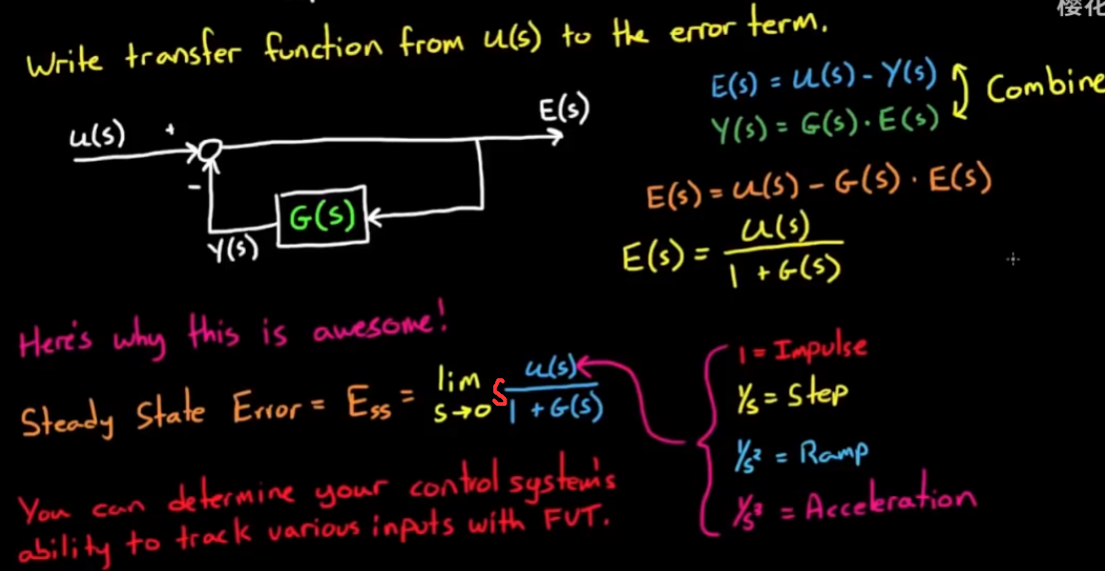 樱花
Write transfer function from U(s) to the error term.
E(s) = U(s) - Y(s)
Y(s) = G(s) · E(s)
Combine
U(s)
+
E(s)
-
G(s)
Y(s)
E(s) = U(s) - G(s) · E(s)
E(s) = U(s) / 1 + G(s)
Here's why this is awesome!
Steady State Error = Ess = lim s→0 S U(s) / 1 + G(s)
1 = Impulse
1/s = Step
1/s² = Ramp
1/s³ = Acceleration
You can determine your control system's
ability to track various inputs with FVT.